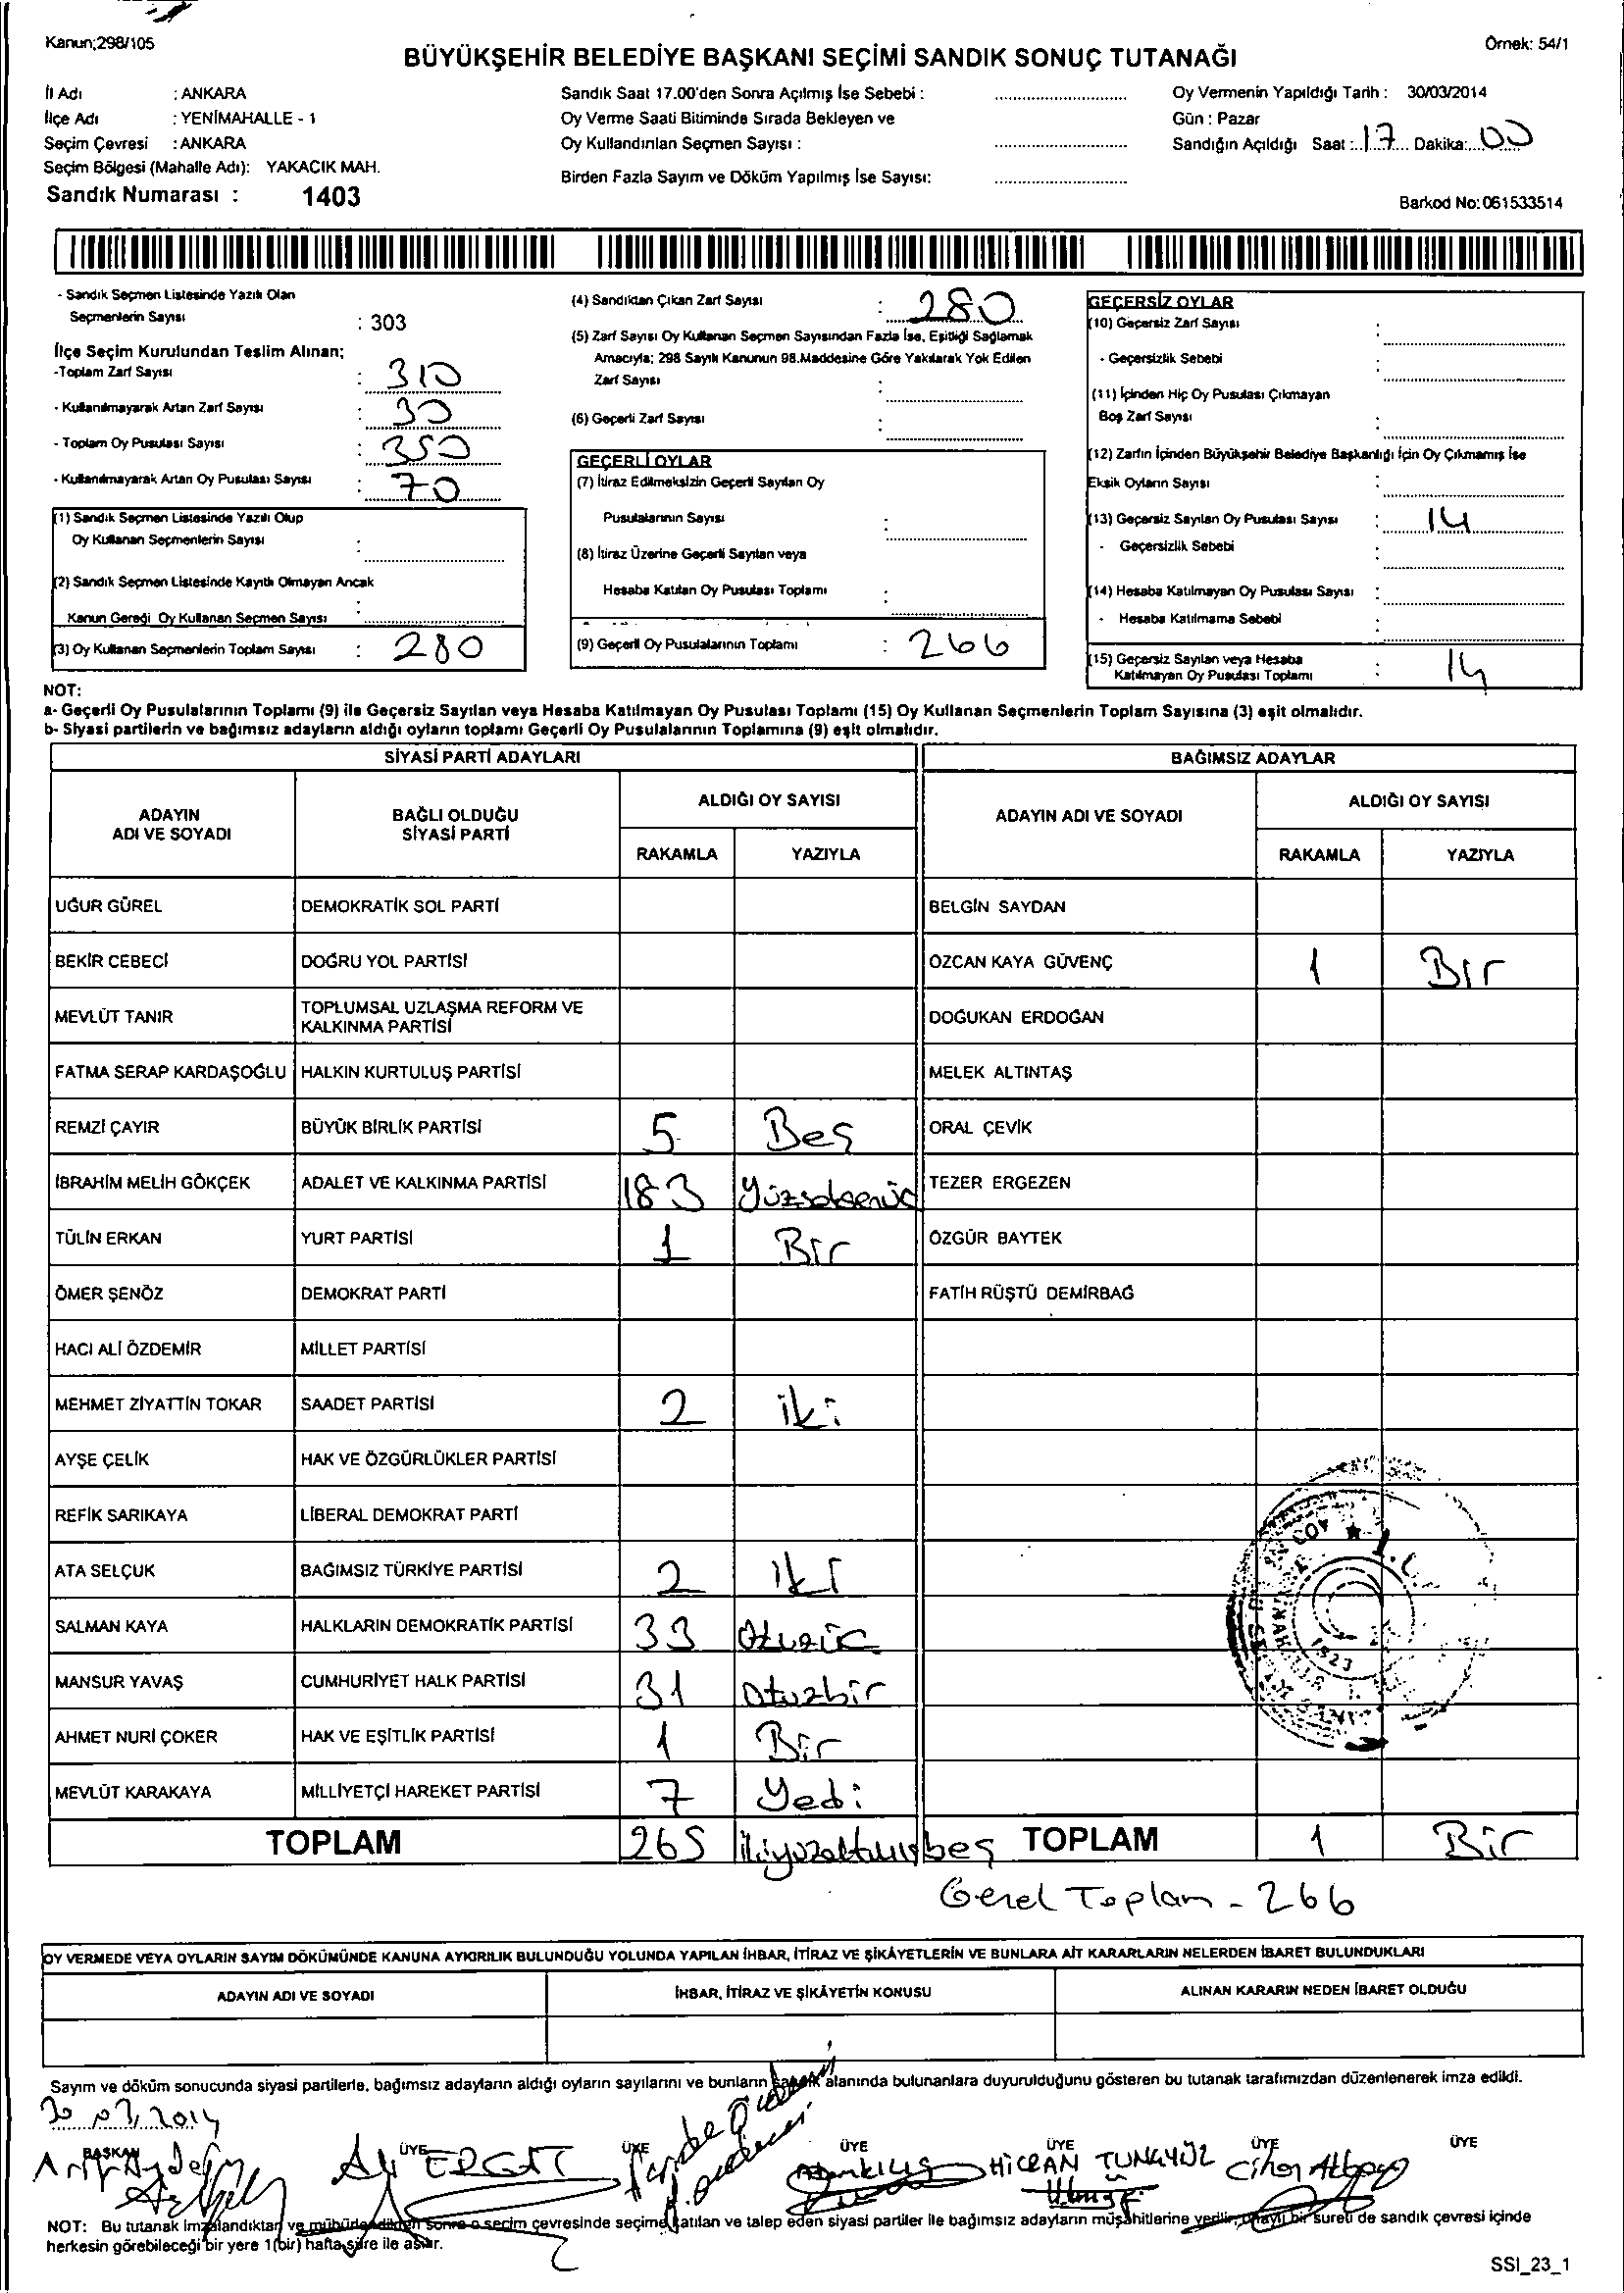 Kanun;298/105
Örnek: 54/1
BÜYÜKŞEHİR BELEDİYE BAŞKANI SEÇİMİ SANDIK SONUÇ TUTANAĞI
İl Adı : ANKARA
İlçe Adı : YENİMAHALLE - 1
Seçim Çevresi : ANKARA
Seçim Bölgesi (Mahalle Adı): YAKACIK MAH.
Sandık Numarası : 1403
Sandık Saat 17.00'den Sonra Açılmış İse Sebebi :
Oy Verme Saati Bitiminde Sırada Bekleyen ve
Oy Kullandırılan Seçmen Sayısı :
Birden Fazla Sayım ve Döküm Yapılmış İse Sayısı:
Oy Vermenin Yapıldığı Tarih : 30/03/2014
Gün : Pazar
Sandığın Açıldığı Saat : 17 Dakika: 00
Barkod No:061533514
- Sandık Seçmen Listesinde Yazılı Olan
Seçmenlerin Sayısı : 303
İlçe Seçim Kurulundan Teslim Alınan;
-Toplam Zarf Sayısı : 310
- Kullanılmayarak Artan Zarf Sayısı : 30
- Toplam Oy Pusulası Sayısı : 350
- Kullanılmayarak Artan Oy Pusulası Sayısı : 70
(1) Sandık Seçmen Listesinde Yazılı Olup
Oy Kullanan Seçmenlerin Sayısı :
(2) Sandık Seçmen Listesinde Kayıtlı Olmayan Ancak
Kanun Gereği Oy Kullanan Seçmen Sayısı :
(3) Oy Kullanan Seçmenlerin Toplam Sayısı : 280
(4) Sandıktan Çıkan Zarf Sayısı : 280
(5) Zarf Sayısı Oy Kullanan Seçmen Sayısından Fazla İse, Eşitliği Sağlamak
Amacıyla; 298 Sayılı Kanunun 98.Maddesine Göre Yakılarak Yok Edilen
Zarf Sayısı :
(6) Geçerli Zarf Sayısı :
GEÇERLİ OYLAR
(7) İtiraz Edilmeksizin Geçerli Sayılan Oy
Pusulalarının Sayısı :
(8) İtiraz Üzerine Geçerli Sayılan veya
Hesaba Katılan Oy Pusulası Toplamı :
(9) Geçerli Oy Pusulalarının Toplamı : 266
GEÇERSİZ OYLAR
(10) Geçersiz Zarf Sayısı :
- Geçersizlik Sebebi :
(11) İçinden Hiç Oy Pusulası Çıkmayan
Boş Zarf Sayısı :
(12) Zarfın İçinden Büyükşehir Belediye Başkanlığı İçin Oy Çıkmamış İse
Eksik Oyların Sayısı :
(13) Geçersiz Sayılan Oy Pusulası Sayısı : 14
- Geçersizlik Sebebi :
(14) Hesaba Katılmayan Oy Pusulası Sayısı :
- Hesaba Katılmama Sebebi :
(15) Geçersiz Sayılan veya Hesaba
Katılmayan Oy Pusulası Toplamı : 14
NOT:
a- Geçerli Oy Pusulalarının Toplamı (9) ile Geçersiz Sayılan veya Hesaba Katılmayan Oy Pusulası Toplamı (15) Oy Kullanan Seçmenlerin Toplam Sayısına (3) eşit olmalıdır.
b- Siyasi partilerin ve bağımsız adayların aldığı oyların toplamı Geçerli Oy Pusulalarının Toplamına (9) eşit olmalıdır.
SİYASİ PARTİ ADAYLARI
ADAYIN ADI VE SOYADI
BAĞLI OLDUĞU SİYASİ PARTİ
ALDIĞI OY SAYISI
RAKAMLA YAZIYLA
BAĞIMSIZ ADAYLAR
ADAYIN ADI VE SOYADI
ALDIĞI OY SAYISI
RAKAMLA YAZIYLA
UĞUR GÜREL DEMOKRATİK SOL PARTİ BELGİN SAYDAN
BEKİR CEBECİ DOĞRU YOL PARTİSİ ÖZCAN KAYA GÜVENÇ 1 Bir
MEVLÜT TANIR TOPLUMSAL UZLAŞMA REFORM VE KALKINMA PARTİSİ DOĞUKAN ERDOĞAN
FATMA SERAP KARDAŞOĞLU HALKIN KURTULUŞ PARTİSİ MELEK ALTINTAŞ
REMZİ ÇAYIR BÜYÜK BİRLİK PARTİSİ 5 Beş ORAL ÇEVİK
İBRAHİM MELİH GÖKÇEK ADALET VE KALKINMA PARTİSİ 183 yüzseksenüç TEZER ERGEZEN
TÜLİN ERKAN YURT PARTİSİ 1 Bir ÖZGÜR BAYTEK
ÖMER ŞENÖZ DEMOKRAT PARTİ FATİH RÜŞTÜ DEMİRBAĞ
HACI ALİ ÖZDEMİR MİLLET PARTİSİ
MEHMET ZİYATTİN TOKAR SAADET PARTİSİ 2 iki
AYŞE ÇELİK HAK VE ÖZGÜRLÜKLER PARTİSİ
REFİK SARIKAYA LİBERAL DEMOKRAT PARTİ
ATA SELÇUK BAĞIMSIZ TÜRKİYE PARTİSİ 2 iki
SALMAN KAYA HALKLARIN DEMOKRATİK PARTİSİ 33
MANSUR YAVAŞ CUMHURİYET HALK PARTİSİ 31 otuzbir
AHMET NURİ ÇOKER HAK VE EŞİTLİK PARTİSİ 1 Bir
MEVLÜT KARAKAYA MİLLİYETÇİ HAREKET PARTİSİ 7 Yedi
TOPLAM 265 ikiyüzaltmışbeş TOPLAM 1 Bir
Genel Toplam - 266
OY VERMEDE VEYA OYLARIN SAYIM DÖKÜMÜNDE KANUNA AYKIRILIK BULUNDUĞU YOLUNDA YAPILAN İHBAR, İTİRAZ VE ŞİKÂYETLERİN VE BUNLARA AİT KARARLARIN NELERDEN İBARET BULUNDUKLARI
ADAYIN ADI VE SOYADI İHBAR, İTİRAZ VE ŞİKÂYETİN KONUSU ALINAN KARARIN NEDEN İBARET OLDUĞU
Sayım ve döküm sonucunda siyasi partilerle, bağımsız adayların aldığı oyların sayılarını ve bunların sandık alanında bulunanlara duyurulduğunu gösteren bu tutanak tarafımızdan düzenlenerek imza edildi.
30.03.2014
BAŞKAN ÜYE ÜYE ÜYE ÜYE ÜYE ÜYE
HİCRAN
NOT: Bu tutanak imzalandıktan ve mühürlendikten sonra o seçim çevresinde seçime katılan ve talep eden siyasi partiler ile bağımsız adayların müşahitlerine verilir, onaylı bir sureti de sandık çevresi içinde
herkesin görebileceği bir yere 1(bir) hafta süre ile asılır.
SSI_23_1